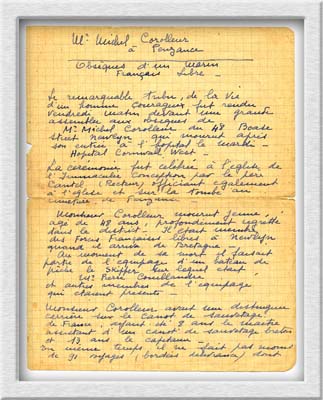 Mr Michel Corolleur
à Penzance
Obsèques d'un Marin
Français Libre _
Le remarquable tribu, de la Vie
d'un homme courageux fut rendu
Vendredi matin devant une grande
assemblée aux obsèques de
Mr Michel Corolleur du 48 Boase
Street Newlyn qui mourut après
son entrée à l'hopital le mardi _
Hopital Cornwall West _
La cérémonie fut célébrée à l'église de
l'Immaculée Conception par le père
(Recteur) officiant également
à l'église et sur la tombe au
cimetière de Penzance
Monsieur Corolleur mourut jeune,
agé de 48 ans, profondément regretté
dans le district _ Il était membre
des Forces Françaises libres à Newlyn
quand il arriva de Bretagne _
Au moment de sa mort il faisait
partie de l'équipage d'un bateau de
pêche le Skipper sur lequel était
Mr Pierre
et autres membres de l'équipage
qui étaient présents _
Monsieur Corolleur avait une distinguée
carrière sur le Canot de Sauvetage
de France, ayant été 8 ans le maître
assistant d'un canot de sauvetage breton
et 13 ans le capitaine
En même temps il ne fait pas moins
de 91 voyages, dont